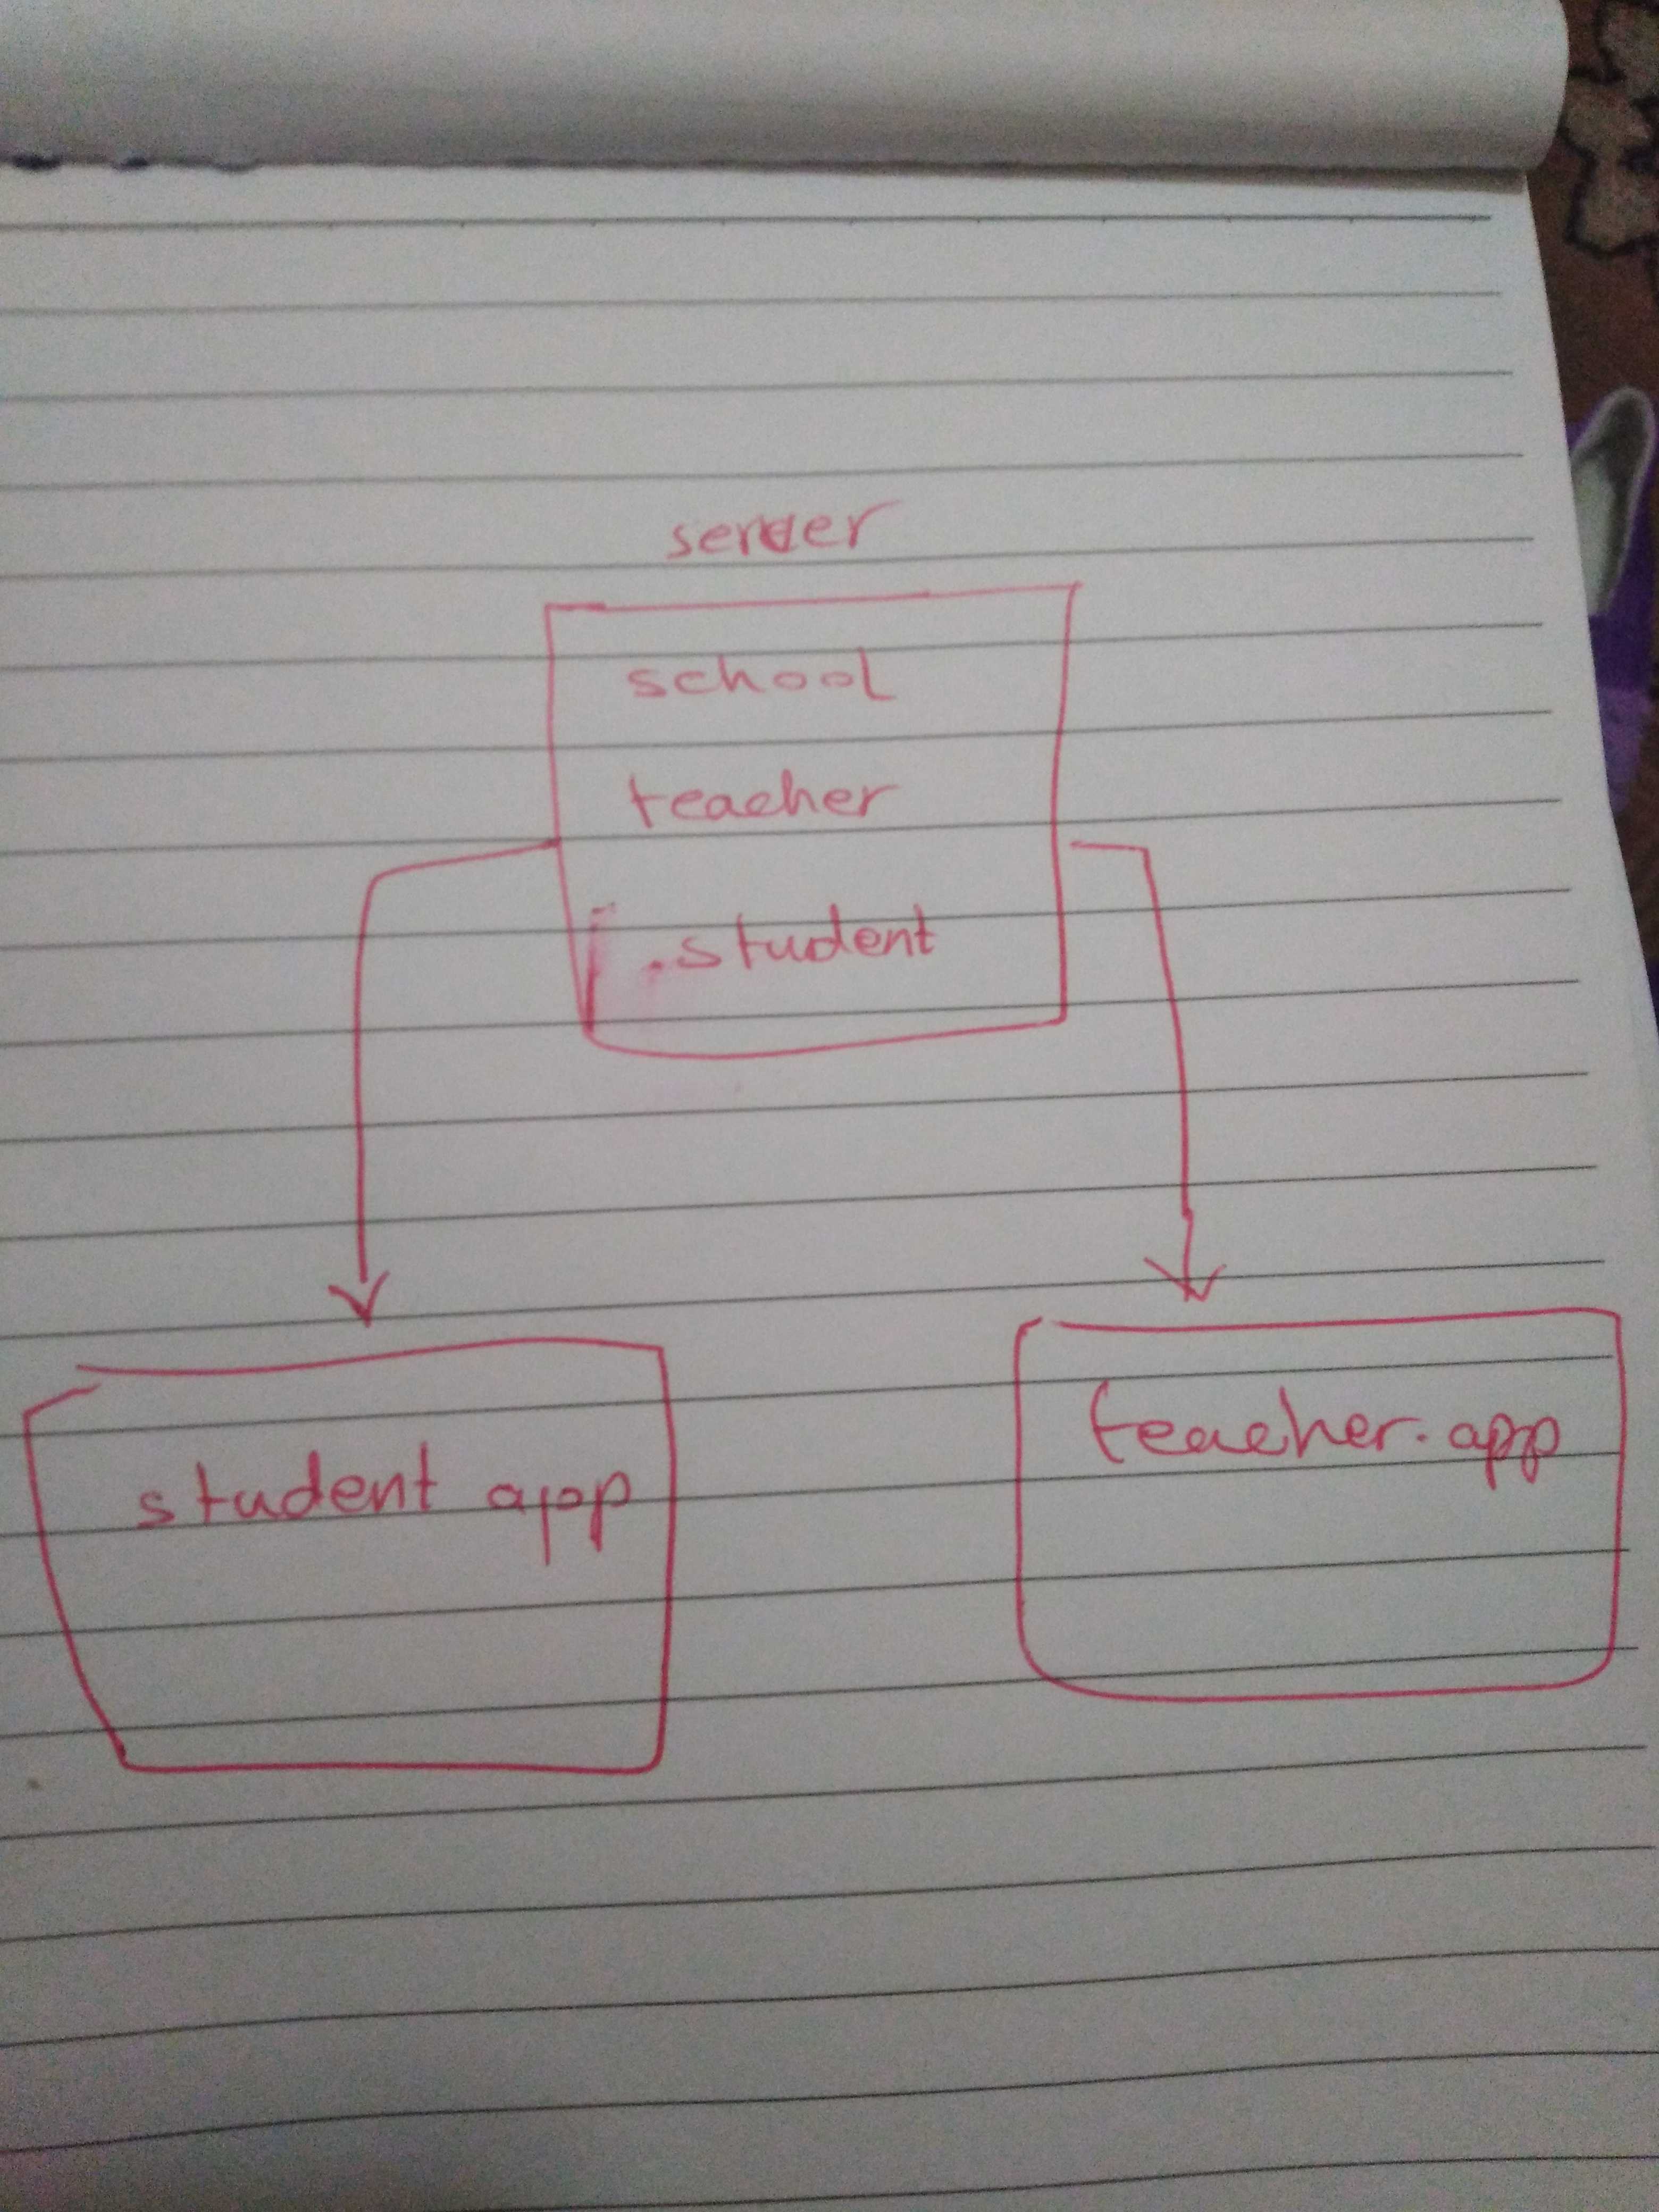 server
school
teacher
.student
student app
teacher.app